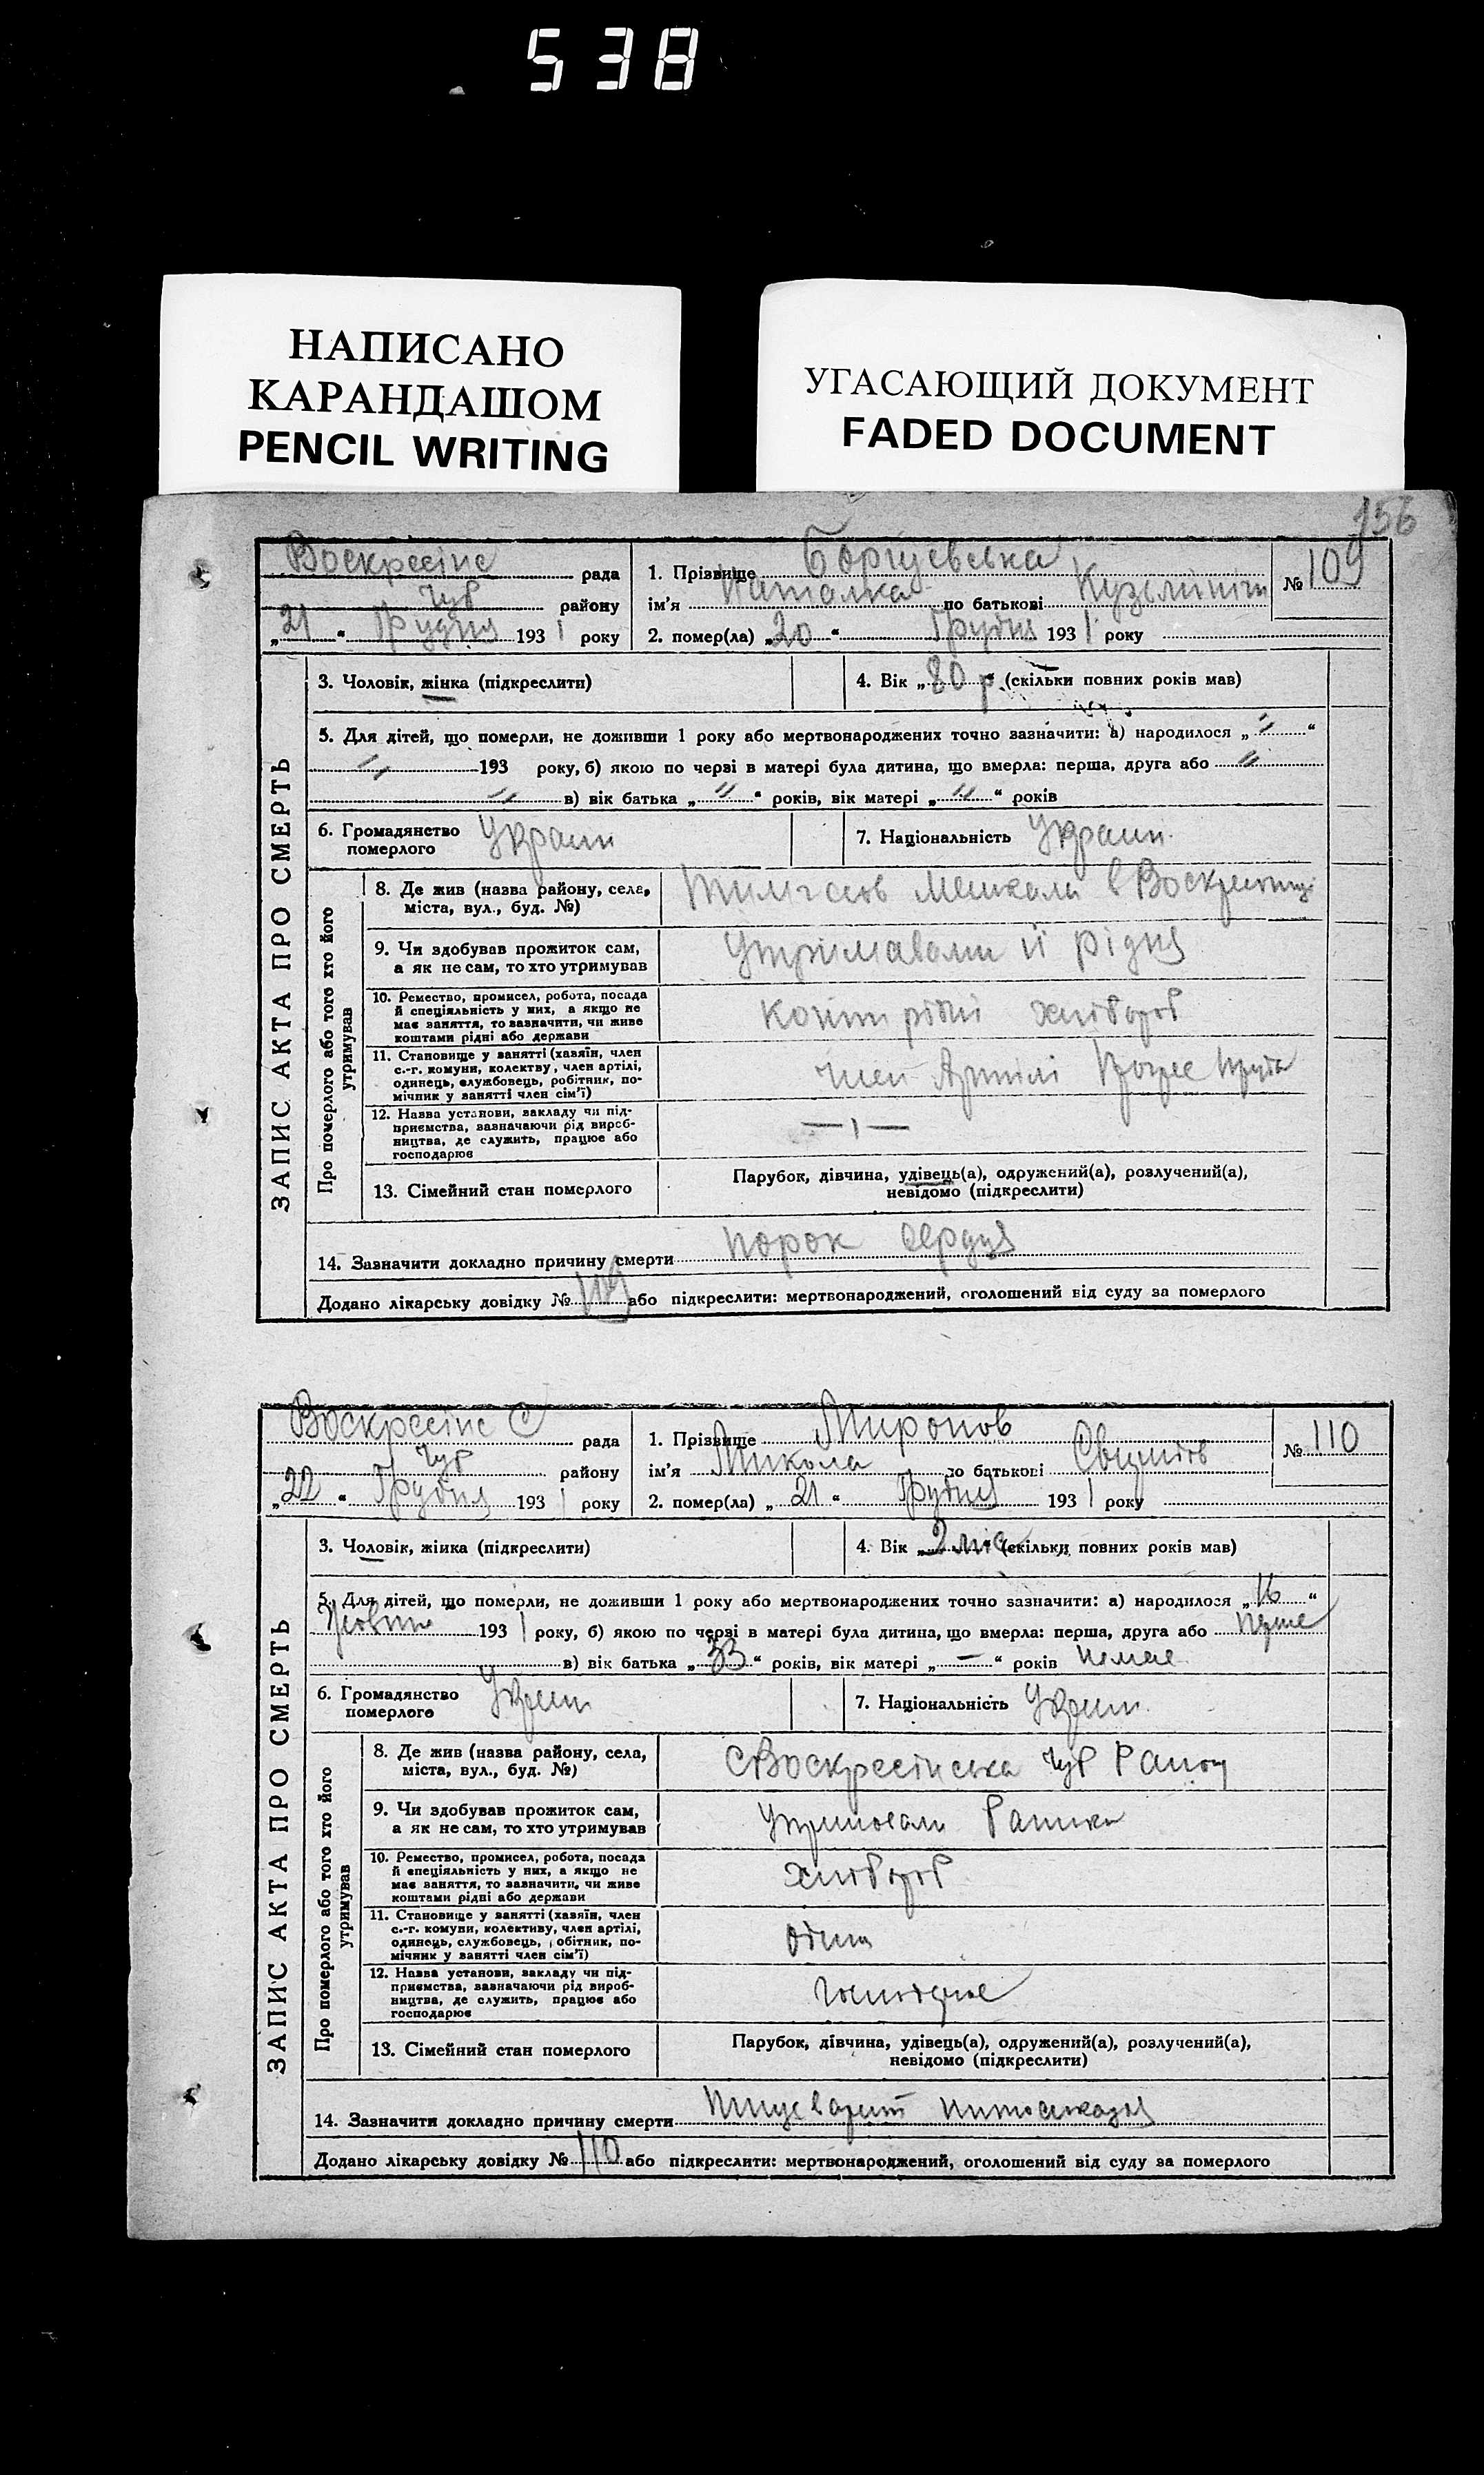 538
НАПИСАНО
КАРАНДАШОМ
PENCIL WRITING
УГАСАЮЩИЙ ДОКУМЕНТ
FADED DOCUMENT
156
Воскресінс рада
Чуб району
„21“ Грудня 1931 року
1. Прізвище Борщевська
ім'я Наталка по батькові
2. помер(ла) „20“ Грудня 1931 року
№ 109
ЗАПИС АКТА ПРО СМЕРТЬ
3. Чоловік, жінка (підкреслити)
4. Вік „80 р.“ (скільки повних років мав)
5. Для дітей, що померли, не доживши 1 року або мертвонароджених точно зазначити: а) народилося „ 〃 “
〃 193 року, б) якою по черзі в матері була дитина, що вмерла: перша, друга або 〃
〃 в) вік батька „ 〃 “ років, вік матері „ 〃 “ років
6. Громадянство
померлого Украин
7. Національність Украин.
Про померлого або того хто його
утримував
8. Де жив (назва району, села,
міста, вул., буд. №)
Тимчасов мешкала в
9. Чи здобував прожиток сам,
а як не сам, то хто утримував
Утримавали її рідня
10. Ремество, промисел, робота, посада
й спеціяльність у них, а якщо не
має заняття, то зазначити, чи живе
коштами рідні або держави
Кошти рідні хлібороб
11. Становище у занятті (хазяїн, член
с.-г. комуни, колектву, член артілі,
одинець, службовець, робітник, по-
мічник у занятті член сім'ї)
член Артілі
12. Назва установи, закладу чи під-
приємства, зазначаючи рід вироб-
ництва, де служить, працює або
господарює
— ı —
13. Сімейний стан померлого
Парубок, дівчина, удівець(а), одружений(а), розлучений(а),
невідомо (підкреслити)
14. Зазначити докладно причину смерти порок сердця
Додано лікарську довідку № 109 або підкреслити: мертвонароджений, оголошений від суду за померлого
Воскресінс С рада
Чуб району
„22“ Грудня 1931 року
1. Прізвище Миронов
ім'я Микола по батькові
2. помер(ла) „21“ Грудня 1931 року
№ 110
ЗАПИС АКТА ПРО СМЕРТЬ
3. Чоловік, жінка (підкреслити)
4. Вік „2 міс“ (скільки повних років мав)
5. Для дітей, що померли, не доживши 1 року або мертвонароджених точно зазначити: а) народилося „16“
Жовтня 1931 року, б) якою по черзі в матері була дитина, що вмерла: перша, друга або перше
в) вік батька „33“ років, вік матері „ — “ років немає
6. Громадянство
померлого Украин
7. Національність Украин.
Про померлого або того хто його
утримував
8. Де жив (назва району, села,
міста, вул., буд. №)
с Воскресінська Чуб Раион
9. Чи здобував прожиток сам,
а як не сам, то хто утримував
Утримовали батьки
10. Ремество, промисел, робота, посада
й спеціяльність у них, а якщо не
має заняття, то зазначити, чи живе
коштами рідні або держави
хлібороб
11. Становище у занятті (хазяїн, член
с.-г. комуни, колективу, член артілі,
одинець, службовець, робітник, по-
мічник у занятті член сім'ї)
12. Назва установи, закладу чи під-
приємства, зазначаючи рід вироб-
ництва, де служить, працює або
господарює
господарює
13. Сімейний стан померлого
Парубок, дівчина, удівець(а), одружений(а), розлучений(а),
невідомо (підкреслити)
14. Зазначити докладно причину смерти
Додано лікарську довідку № 110 або підкреслити: мертвонароджений, оголошений від суду за померлого